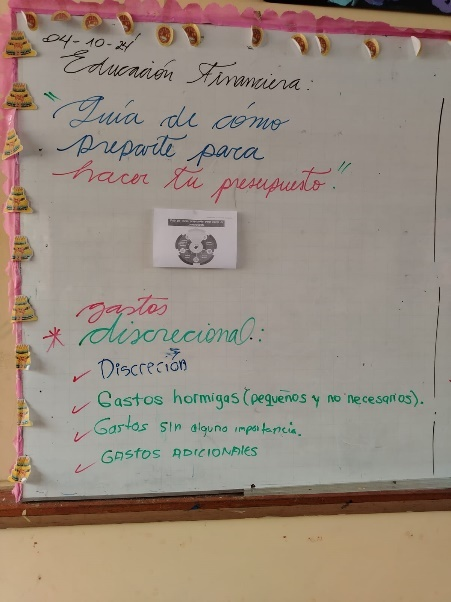 04-10-24
Educación Financiera:
"Guía de cómo
preparte para
hacer tu presupuesto."
gastos
* discrecional.:
✓ Discreción
✓ Gastos hormigas (pequeños y no necesarios).
✓ Gastos sin alguna importancia.
✓ GASTOS ADICIONALES